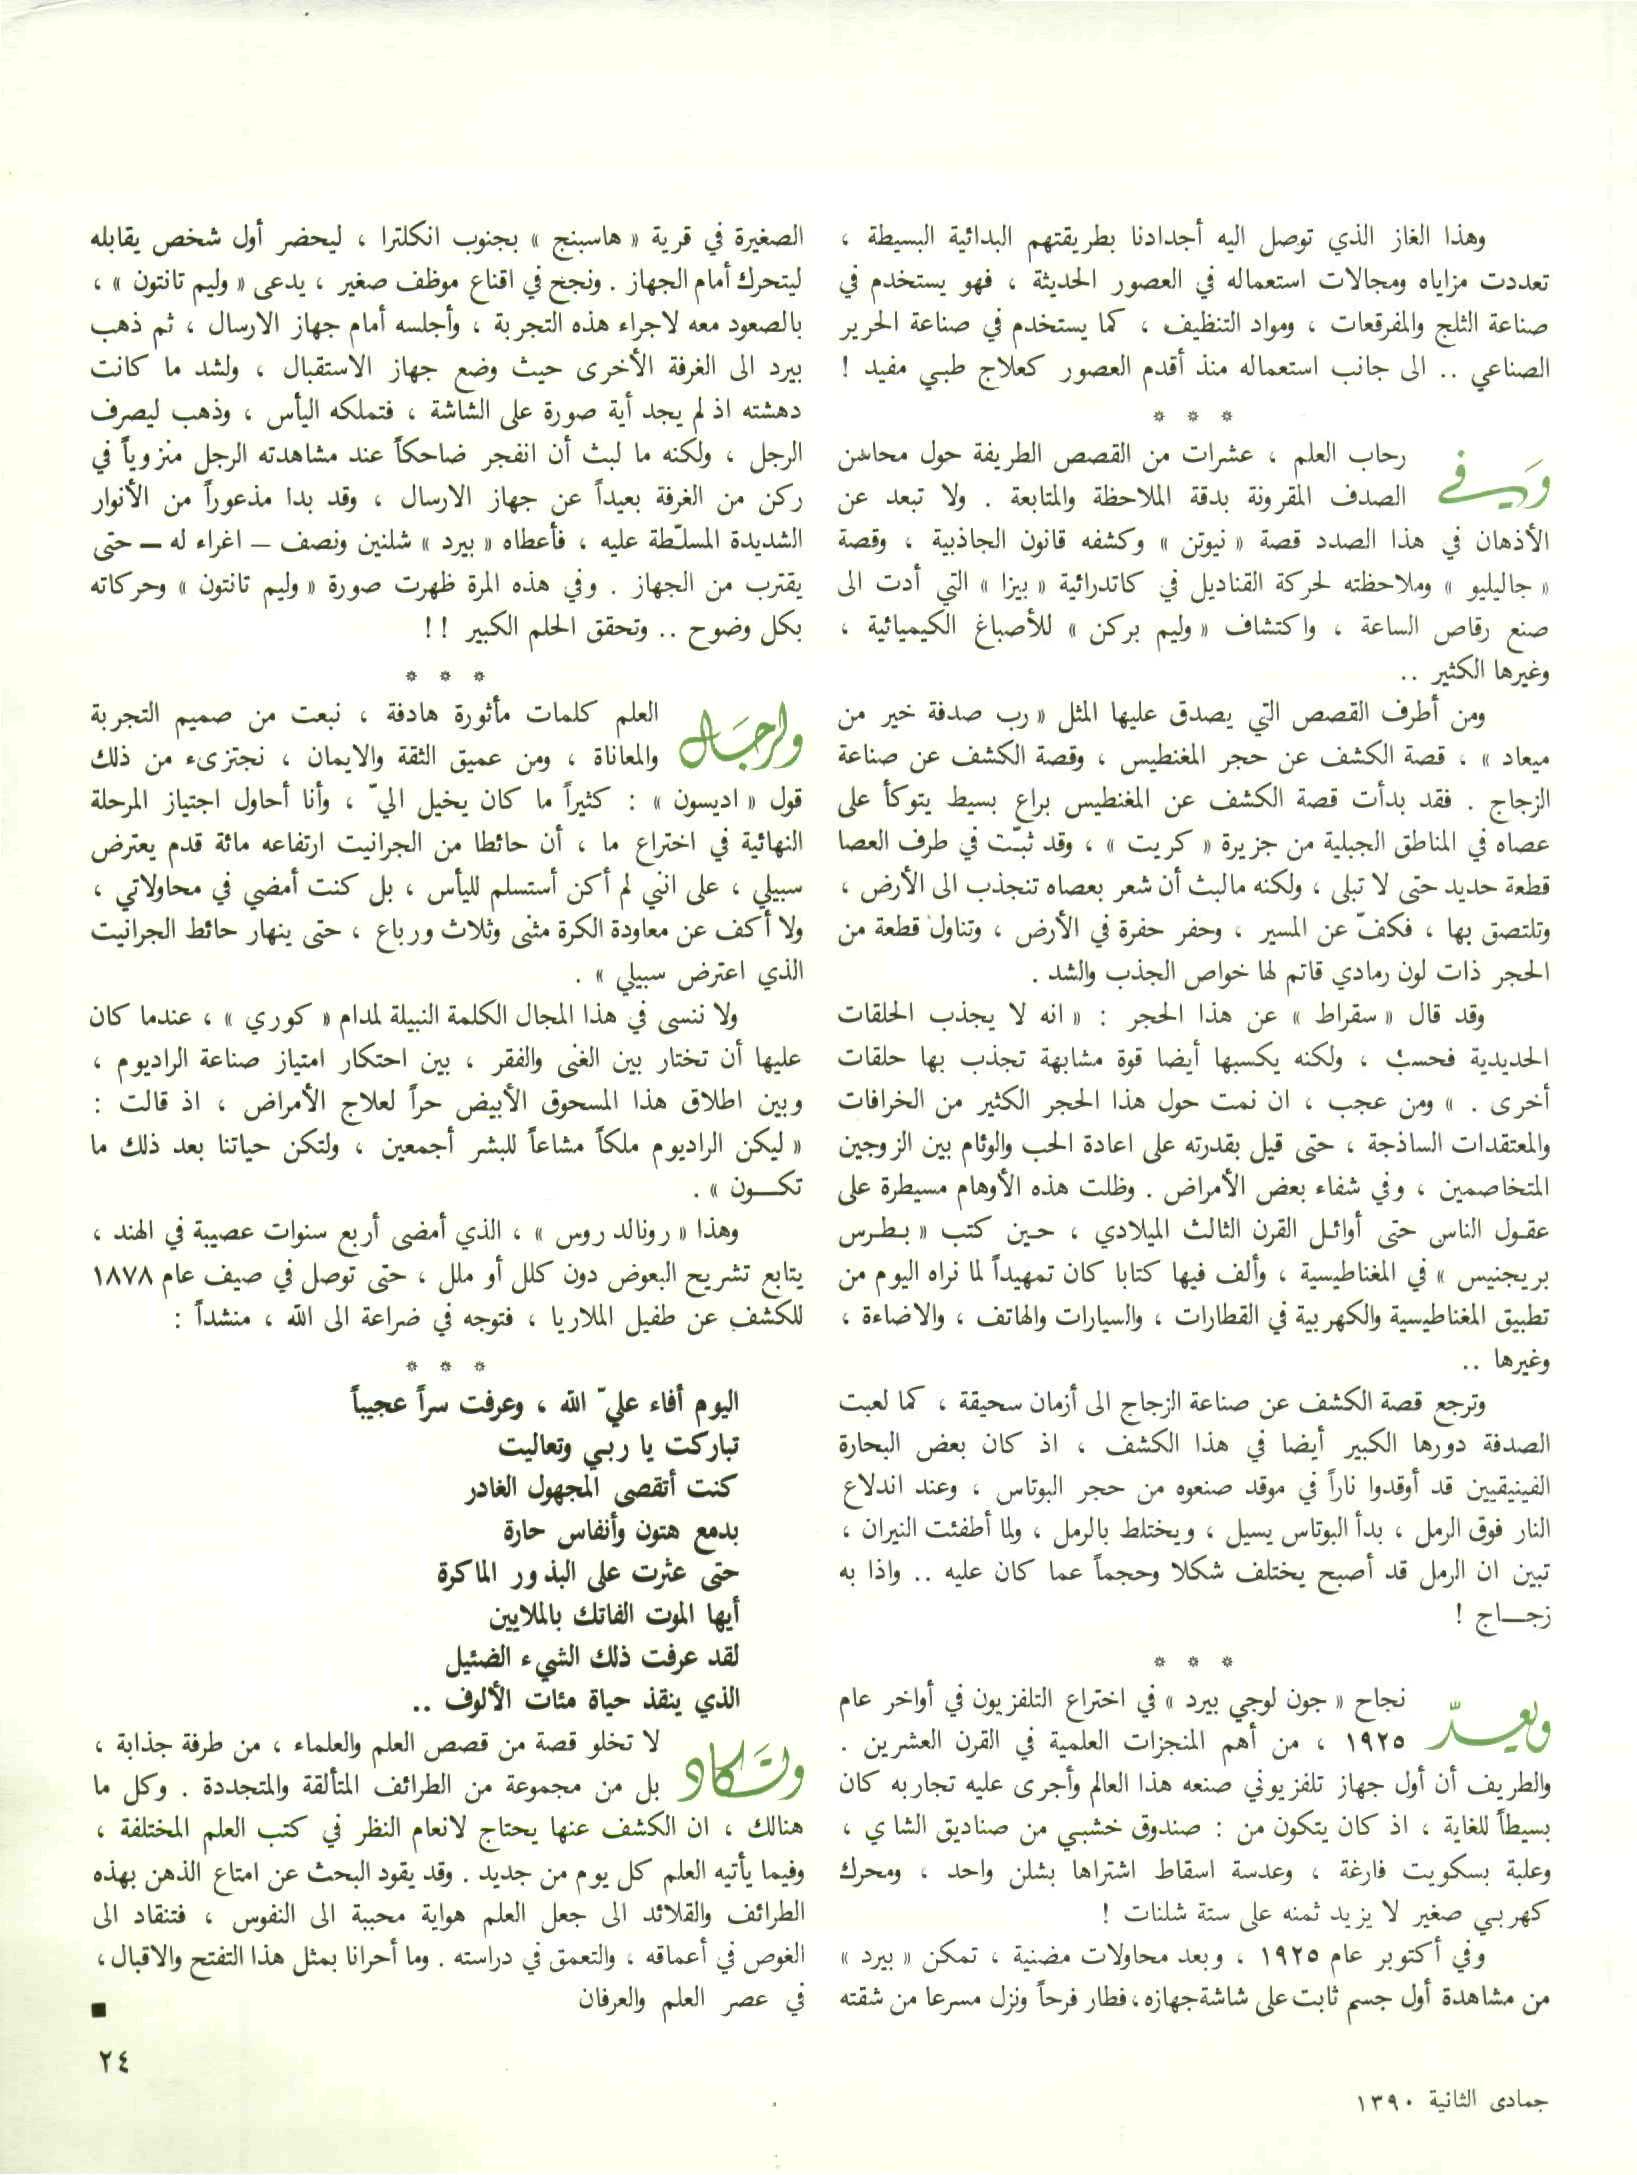 وهذا الغاز الذي توصل اليه أجدادنا بطريقتهم البدائية البسيطة ،
تعددت مزاياه ومجالات استعماله في العصور الحديثة ، فهو يستخدم في
صناعة الثلج والمفرقعات ، ومواد التنظيف ، كما يستخدم في صناعة الحرير
الصناعي .. الى جانب استعماله منذ أقدم العصور كعلاج طبي مفيد !
* * *
وفي رحاب العلم ، عشرات من القصص الطريفة حول محاسن
الصدف المقرونة بدقة الملاحظة والمتابعة . ولا تبعد عن
الأذهان في هذا الصدد قصة « نيوتن » وكشفه قانون الجاذبية ، وقصة
« جاليليو » وملاحظته لحركة القناديل في كاتدرائية « بيزا » التي أدت الى
صنع رقاص الساعة ، واكتشاف « وليم بركن » للأصباغ الكيميائية ،
وغيرها الكثير ..
ومن أطرف القصص التي يصدق عليها المثل « رب صدفة خير من
ميعاد » ، قصة الكشف عن حجر المغنطيس ، وقصة الكشف عن صناعة
الزجاج . فقد بدأت قصة الكشف عن المغنطيس براع بسيط يتوكأ على
عصاه في المناطق الجبلية من جزيرة « كريت » ، وقد ثبّت في طرف العصا
قطعة حديد حتى لا تبلى ، ولكنه مالبث أن شعر بعصاه تنجذب الى الأرض ،
وتلتصق بها ، فكفّ عن المسير ، وحفر حفرة في الأرض ، وتناول قطعة من
الحجر ذات لون رمادي قاتم لها خواص الجذب والشد .
وقد قال « سقراط » عن هذا الحجر : « انه لا يجذب الحلقات
الحديدية فحسب ، ولكنه يكسبها أيضا قوة مشابهة تجذب بها حلقات
أخرى . » ومن عجب ، ان نمت حول هذا الحجر الكثير من الخرافات
والمعتقدات الساذجة ، حتى قيل بقدرته على اعادة الحب والوئام بين الزوجين
المتخاصمين ، وفي شفاء بعض الأمراض . وظلت هذه الأوهام مسيطرة على
عقول الناس حتى أوائل القرن الثالث الميلادي ، حين كتب « بطرس
بريجنيس » في المغناطيسية ، وألف فيها كتابا كان تمهيداً لما نراه اليوم من
تطبيق المغناطيسية والكهربية في القطارات ، والسيارات والهاتف ، والاضاءة ،
وغيرها ..
وترجع قصة الكشف عن صناعة الزجاج الى أزمان سحيقة ، كما لعبت
الصدفة دورها الكبير أيضا في هذا الكشف ، اذ كان بعض البحارة
الفينيقيين قد أوقدوا ناراً في موقد صنعوه من حجر البوتاس ، وعند اندلاع
النار فوق الرمل ، بدأ البوتاس يسيل ، ويختلط بالرمل ، ولما أطفئت النيران ،
تبين ان الرمل قد أصبح يختلف شكلا وحجماً عما كان عليه .. واذا به
زجــاج !
* * *
ويعدّ نجاح « جون لوجي بيرد » في اختراع التلفزيون في أواخر عام
١٩٢٥ ، من أهم المنجزات العلمية في القرن العشرين .
والطريف أن أول جهاز تلفزيوني صنعه هذا العالم وأجرى عليه تجاربه كان
بسيطاً للغاية ، اذ كان يتكون من : صندوق خشبي من صناديق الشاي ،
وعلبة بسكويت فارغة ، وعدسة اسقاط اشتراها بشلن واحد ، ومحرك
كهربي صغير لا يزيد ثمنه على ستة شلنات !
وفي أكتوبر عام ١٩٢٥ ، وبعد محاولات مضنية ، تمكن « بيرد »
من مشاهدة أول جسم ثابت على شاشة جهازه ، فطار فرحاً ونزل مسرعا من شقته
الصغيرة في قرية « هاسبنج » بجنوب انكلترا ، ليحضر أول شخص يقابله
ليتحرك أمام الجهاز . ونجح في اقناع موظف صغير ، يدعى « وليم تانتون » ،
بالصعود معه لاجراء هذه التجربة ، وأجلسه أمام جهاز الارسال ، ثم ذهب
بيرد الى الغرفة الأخرى حيث وضع جهاز الاستقبال ، ولشد ما كانت
دهشته اذ لم يجد أية صورة على الشاشة ، فتملكه اليأس ، وذهب ليصرف
الرجل ، ولكنه ما لبث أن انفجر ضاحكاً عند مشاهدته الرجل منزوياً في
ركن من الغرفة بعيداً عن جهاز الارسال ، وقد بدا مذعوراً من الأنوار
الشديدة المسلّطة عليه ، فأعطاه « بيرد » شلنين ونصف – اغراء له – حتى
يقترب من الجهاز . وفي هذه المرة ظهرت صورة « وليم تانتون » وحركاته
بكل وضوح .. وتحقق الحلم الكبير !!
* * *
ولرجال العلم كلمات مأثورة هادفة ، نبعت من صميم التجربة
والمعاناة ، ومن عميق الثقة والايمان ، نجتزىء من ذلك
قول « اديسون » : كثيراً ما كان يخيل اليّ ، وأنا أحاول اجتياز المرحلة
النهائية في اختراع ما ، أن حائطا من الجرانيت ارتفاعه مائة قدم يعترض
سبيلي ، على انني لم أكن أستسلم لليأس ، بل كنت أمضي في محاولاتي ،
ولا أكف عن معاودة الكرة مثنى وثلاث ورباع ، حتى ينهار حائط الجرانيت
الذي اعترض سبيلي » .
ولا ننسى في هذا المجال الكلمة النبيلة لمدام « كوري » ، عندما كان
عليها أن تختار بين الغنى والفقر ، بين احتكار امتياز صناعة الراديوم ،
وبين اطلاق هذا المسحوق الأبيض حراً لعلاج الأمراض ، اذ قالت :
« ليكن الراديوم ملكاً مشاعاً للبشر أجمعين ، ولتكن حياتنا بعد ذلك ما
تكــون » .
وهذا « رونالد روس » ، الذي أمضى أربع سنوات عصيبة في الهند ،
يتابع تشريح البعوض دون كلل أو ملل ، حتى توصل في صيف عام ١٨٧٨
للكشف عن طفيل الملاريا ، فتوجه في ضراعة الى الله ، منشداً :
* * *
اليوم أفاء عليّ الله ، وعرفت سراً عجيباً
تباركت يا ربي وتعاليت
كنت أتقصى المجهول الغادر
بدمع هتون وأنفاس حارة
حتى عثرت على البذور الماكرة
أيها الموت الفاتك بالملايين
لقد عرفت ذلك الشيء الضئيل
الذي ينقذ حياة مئات الألوف ..
وتكاد لا تخلو قصة من قصص العلم والعلماء ، من طرفة جذابة ،
بل من مجموعة من الطرائف المتألقة والمتجددة . وكل ما
هنالك ، ان الكشف عنها يحتاج لانعام النظر في كتب العلم المختلفة ،
وفيما يأتيه العلم كل يوم من جديد . وقد يقود البحث عن امتاع الذهن بهذه
الطرائف والقلائد الى جعل العلم هواية محببة الى النفوس ، فتنقاد الى
الغوص في أعماقه ، والتعمق في دراسته . وما أحرانا بمثل هذا التفتح والاقبال ،
في عصر العلم والعرفان ■
٢٤
جمادى الثانية ١٣٩٠